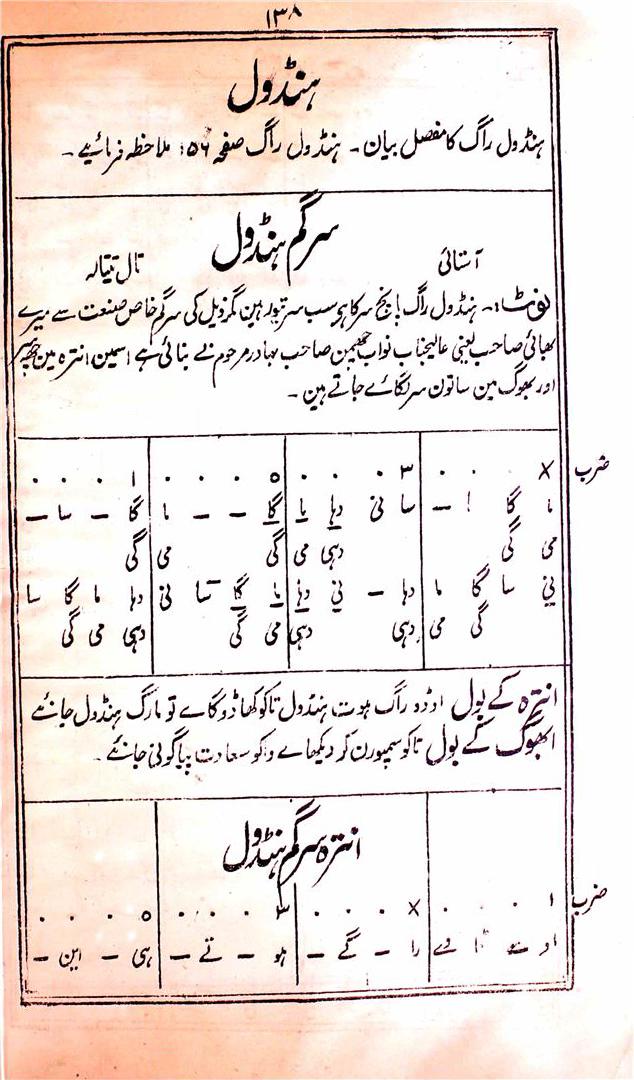 ۱۳۸
ہنڈول
ہنڈول راگ کا مفصل بیان ۔ ہنڈول راگ صفحہ ۱۵۶ ملاحظہ فرمائیے ۔
سرگم ہنڈول
آستائی تال تیتالہ
نوٹ :۔ ہنڈول راگ پانچ سر کا ہر سب سر تیور ہین مگر ذیل کی سرگم خاص صنعت سے میرے
بھائی صاحب یعنی عالیجناب نواب چھمن صاحب بہادر مرحوم نے بنائی ہے اسمین انترہ مین چھ سر
اور بھوگ مین ساتون سر لگائے جاتے ہین ۔
ضرب × ۰ ۰ ۰ ۳ ۰ ۰ ۰ ٥ ۰ ۰ ۰ ۱ ۰ ۰ ۰
ما گا ا – سا نی دہا ما گا – – ما گا – سا –
می گی دہی می گی می گی
نی سا گا ما دہا – نی دہا ما گا سا نی دہا ما گا سا
گی می دہی دہی می گی دہی می گی
انترہ کے بول اوڈو راگ ہوت ہنڈول تاکو کھاڈو گاے تو مارگ ہنڈول جانئے
ابھوگ کے بول تاکو سمپورن کر دیکھاے واکو سعادت پیا گونی جانئے ۔
انترہ سرگم ہنڈول
ضرب ۱ ۰ ۰ ۰ × ۰ ۰ ۰ ۳ ۰ ۰ ۰ ٥ ۰ ۰ ۰
او – وے را – گے – ہو – تے – ہی – این –